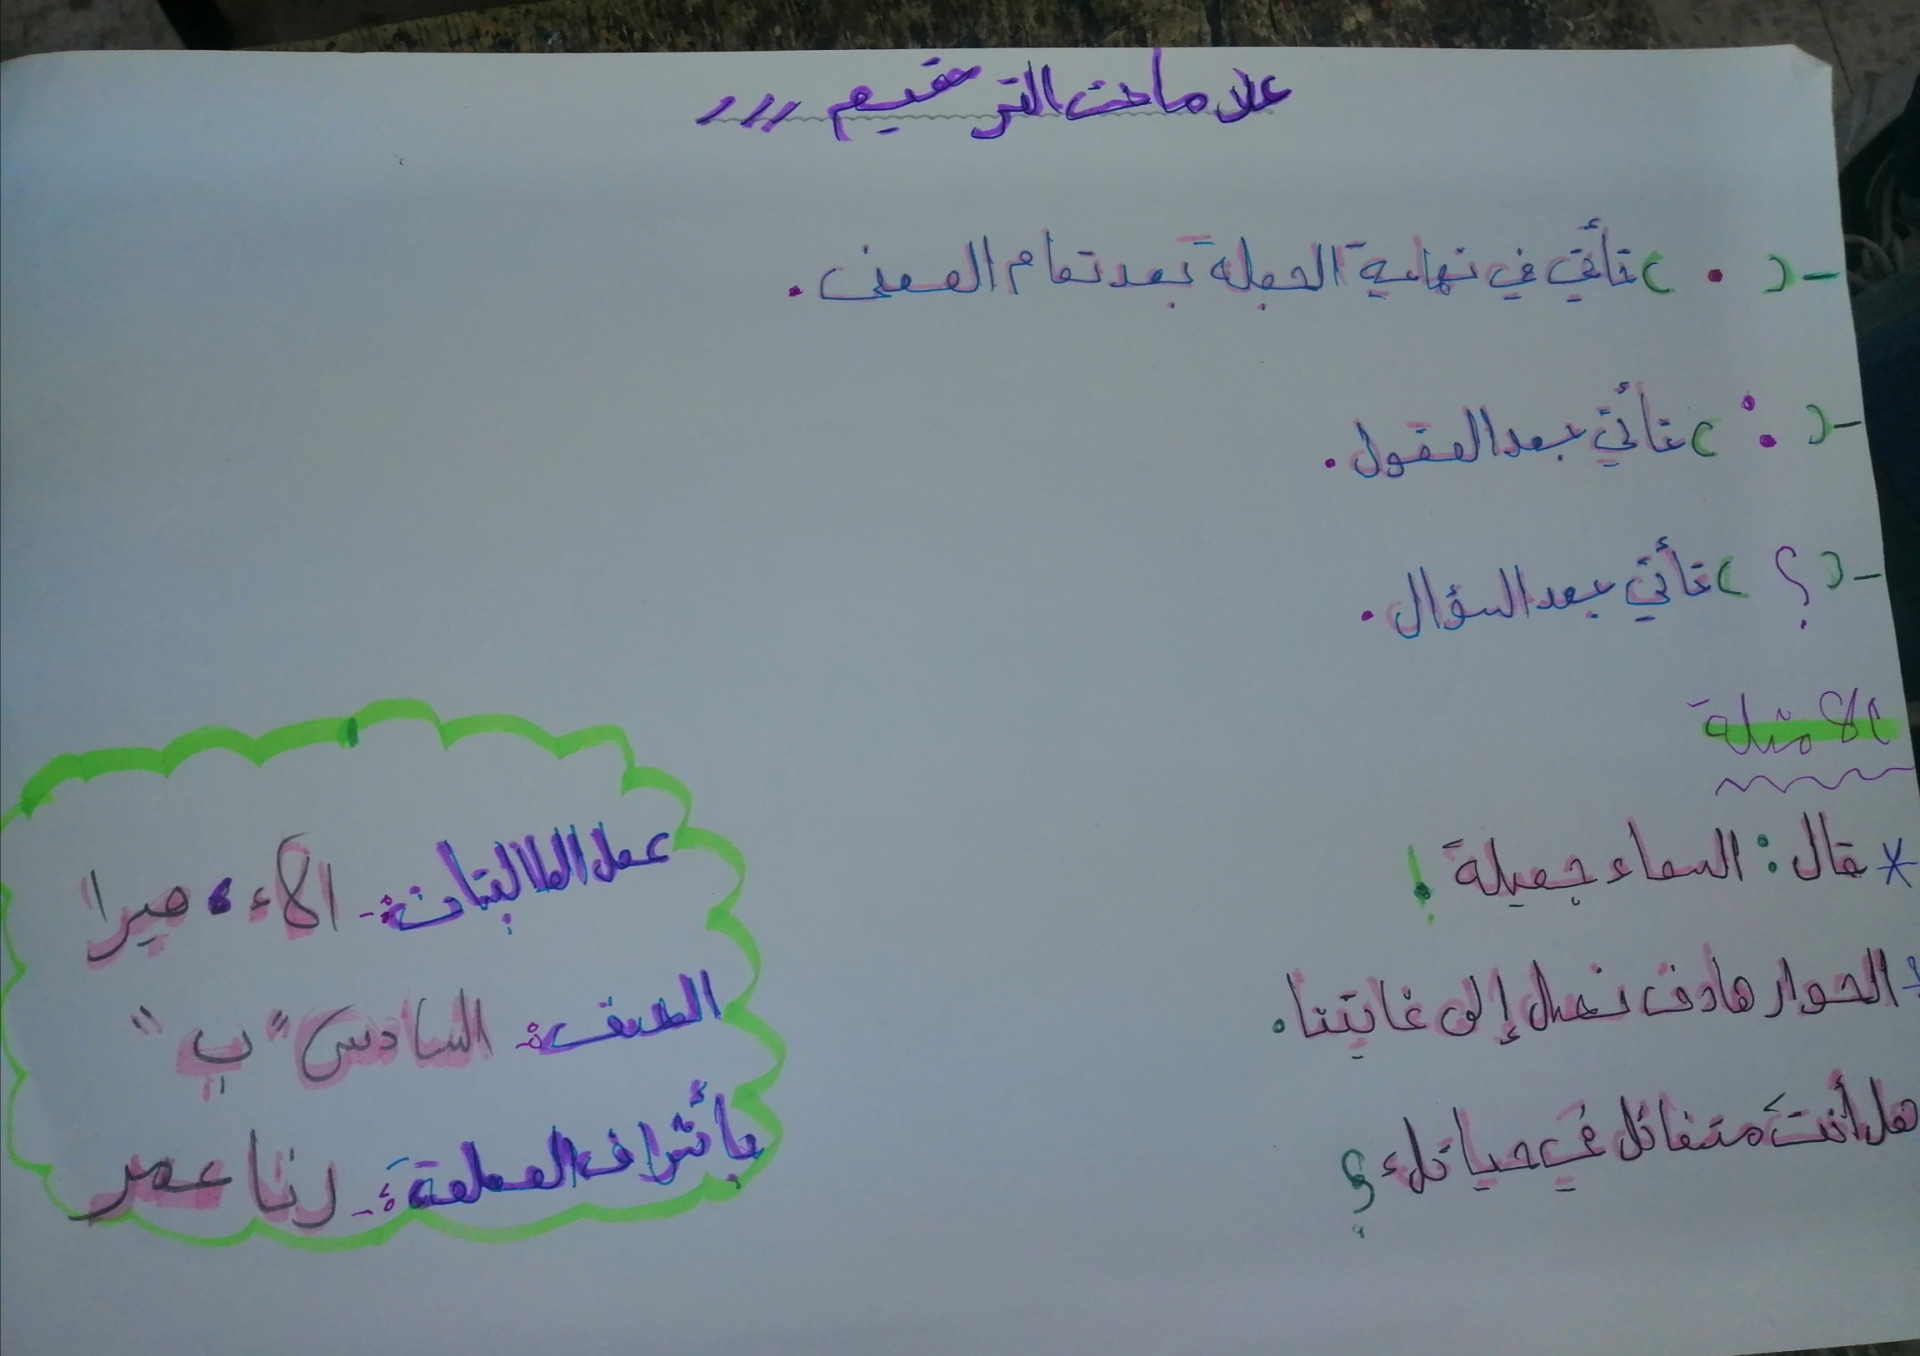 علامات الترقيم ,,,
-( . ) تأتي في نهاية الجملة بعد تمام المعنى .
-( : ) تأتي بعد القول .
-( ؟ ) تأتي بعد السؤال .
الامثلة
* قال : السماء جميلة !
* الحوار هادف نصل إلى غايتنا .
هل أنت متفائل في حياتك ؟
عمل الطالبتان :- الاء ، ميرا
الصف :- السادس "ب"
بأشراف المعلمة :- رنا عمر